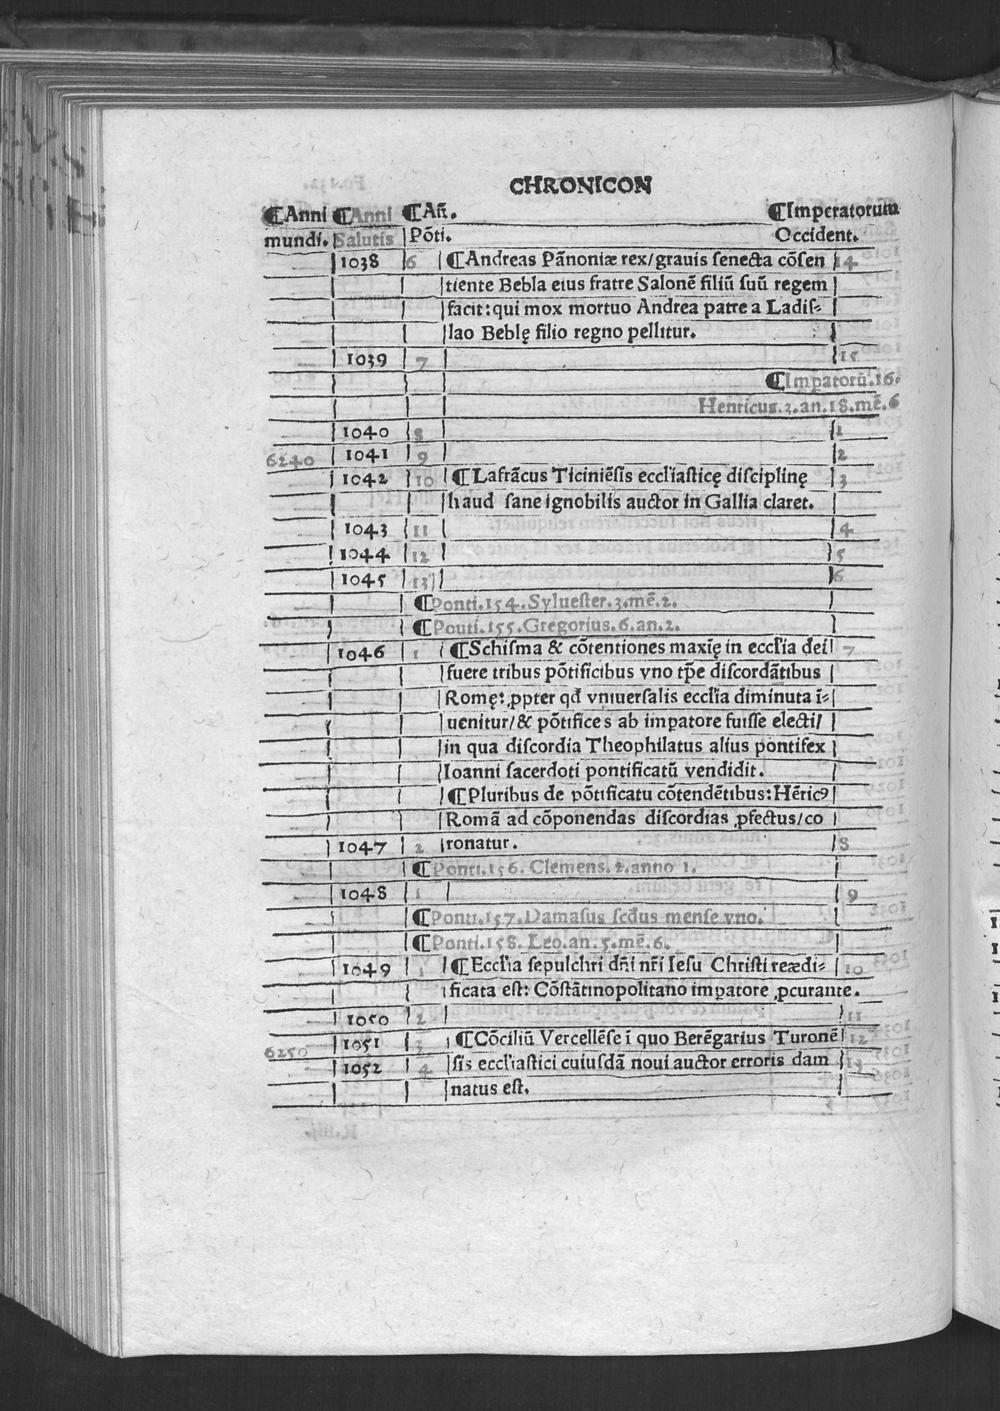 CHRONICON
⁋Anni ⁋Anni ⁋Añ. ⁋Imperatorum
mundi. Salutis Põti. Occident.
1038 6 ⁋Andreas Pãnoniæ rex/grauis ſenecta cõſen 14
tiente Bebla eius fratre Salonẽ filiũ ſuũ regem
facit: qui mox mortuo Andrea patre a Ladiſ⸗
lao Beblę filio regno pellitur.
1039 7 15
⁋Impatorũ.16.
Henricus.3.an.18.mẽ.6
1040 8 1
6240 1041 9 2
1042 10 ⁋Lafrãcus Ticiniẽſis eccl'iaſticę diſciplinę 3
haud ſane ignobilis auctor in Gallia claret.
1043 11 4
1044 12 5
1045 13 6
⁋Ponti.154.Sylueſter.3.mẽ.2.
⁋Pouti.155.Gregorius.6.an.2.
1046 1 ⁋Schiſma & cõtentiones maxię in eccl'ia dei 7
fuere tribus põtificibus vno tp̃e diſcordãtibus
Romę: ꝓpter qđ vniuerſalis eccl'ia diminuta ĩ⸗
uenitur/& põtifices ab impatore fuiſſe electi/
in qua diſcordia Theophilatus alius pontifex
Ioanni ſacerdoti pontificatũ vendidit.
⁋Pluribus de põtificatu cõtendẽtibus: Hẽricꝰ
Romã ad cõponendas diſcordias ꝓfectus/co
1047 2 ronatur. 8
⁋Ponti.156. Clemens.2.anno 1.
1048 1 9
⁋Ponti.157.Damaſus ſcđus menſe vno.
⁋Ponti.158. Leo.an.5.mẽ.6.
1049 1 ⁋Eccl'ia ſepulchri dñi nr̃i Ieſu Chriſti reædi⸗ 10
ficata eſt: Cõſtãtinopolitano impatore ꝓcurante.
1050 2 11
6250 1051 3 ⁋Cõciliũ Vercellẽſe ĩ quo Berẽgarius Turonẽ 12
1052 4 ſis eccl'iaſtici cuiuſdã noui auctor erroris dam 13
natus eſt.